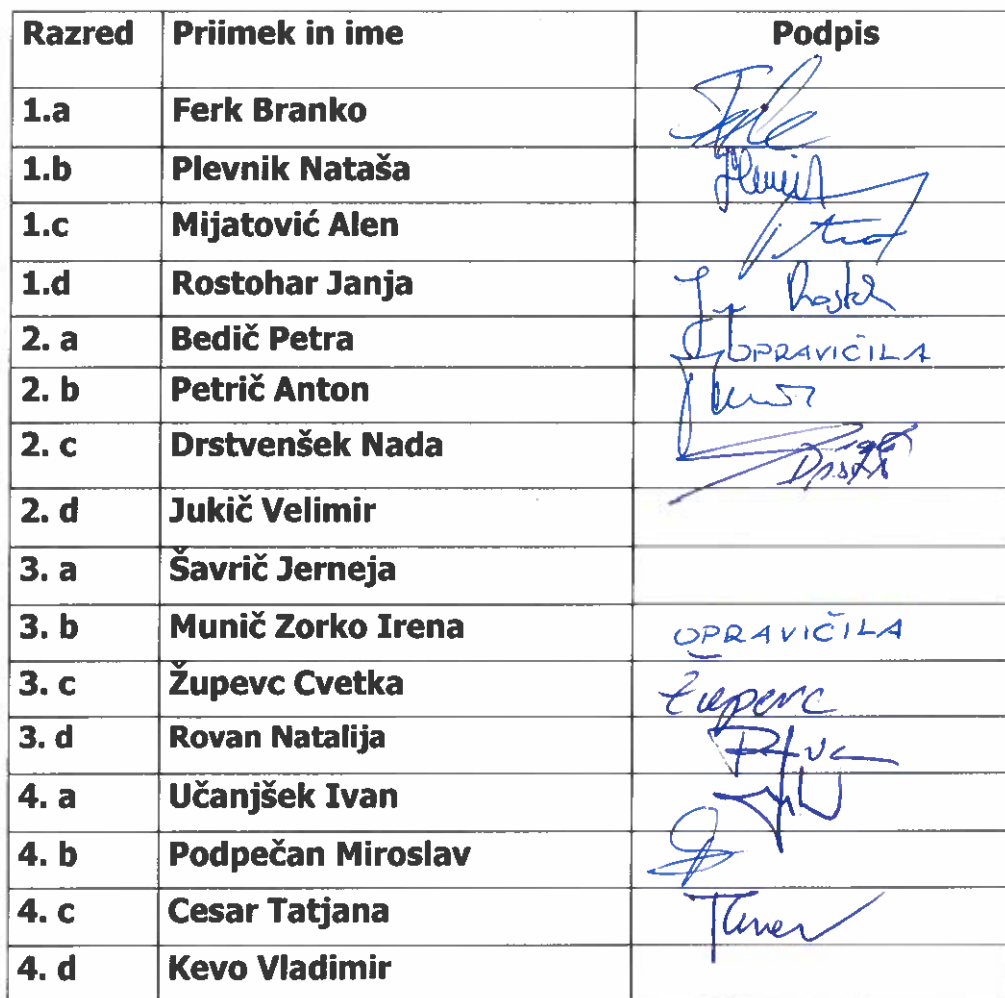 Razred Priimek in ime Podpis
1.a Ferk Branko
1.b Plevnik Nataša
1.c Mijatović Alen
1.d Rostohar Janja
2. a Bedič Petra OPRAVIČILA
2. b Petrič Anton
2. c Drstvenšek Nada
2. d Jukič Velimir
3. a Šavrič Jerneja
3. b Munič Zorko Irena OPRAVIČILA
3. c Župevc Cvetka Župevc
3. d Rovan Natalija
4. a Učanjšek Ivan
4. b Podpečan Miroslav
4. c Cesar Tatjana
4. d Kevo Vladimir